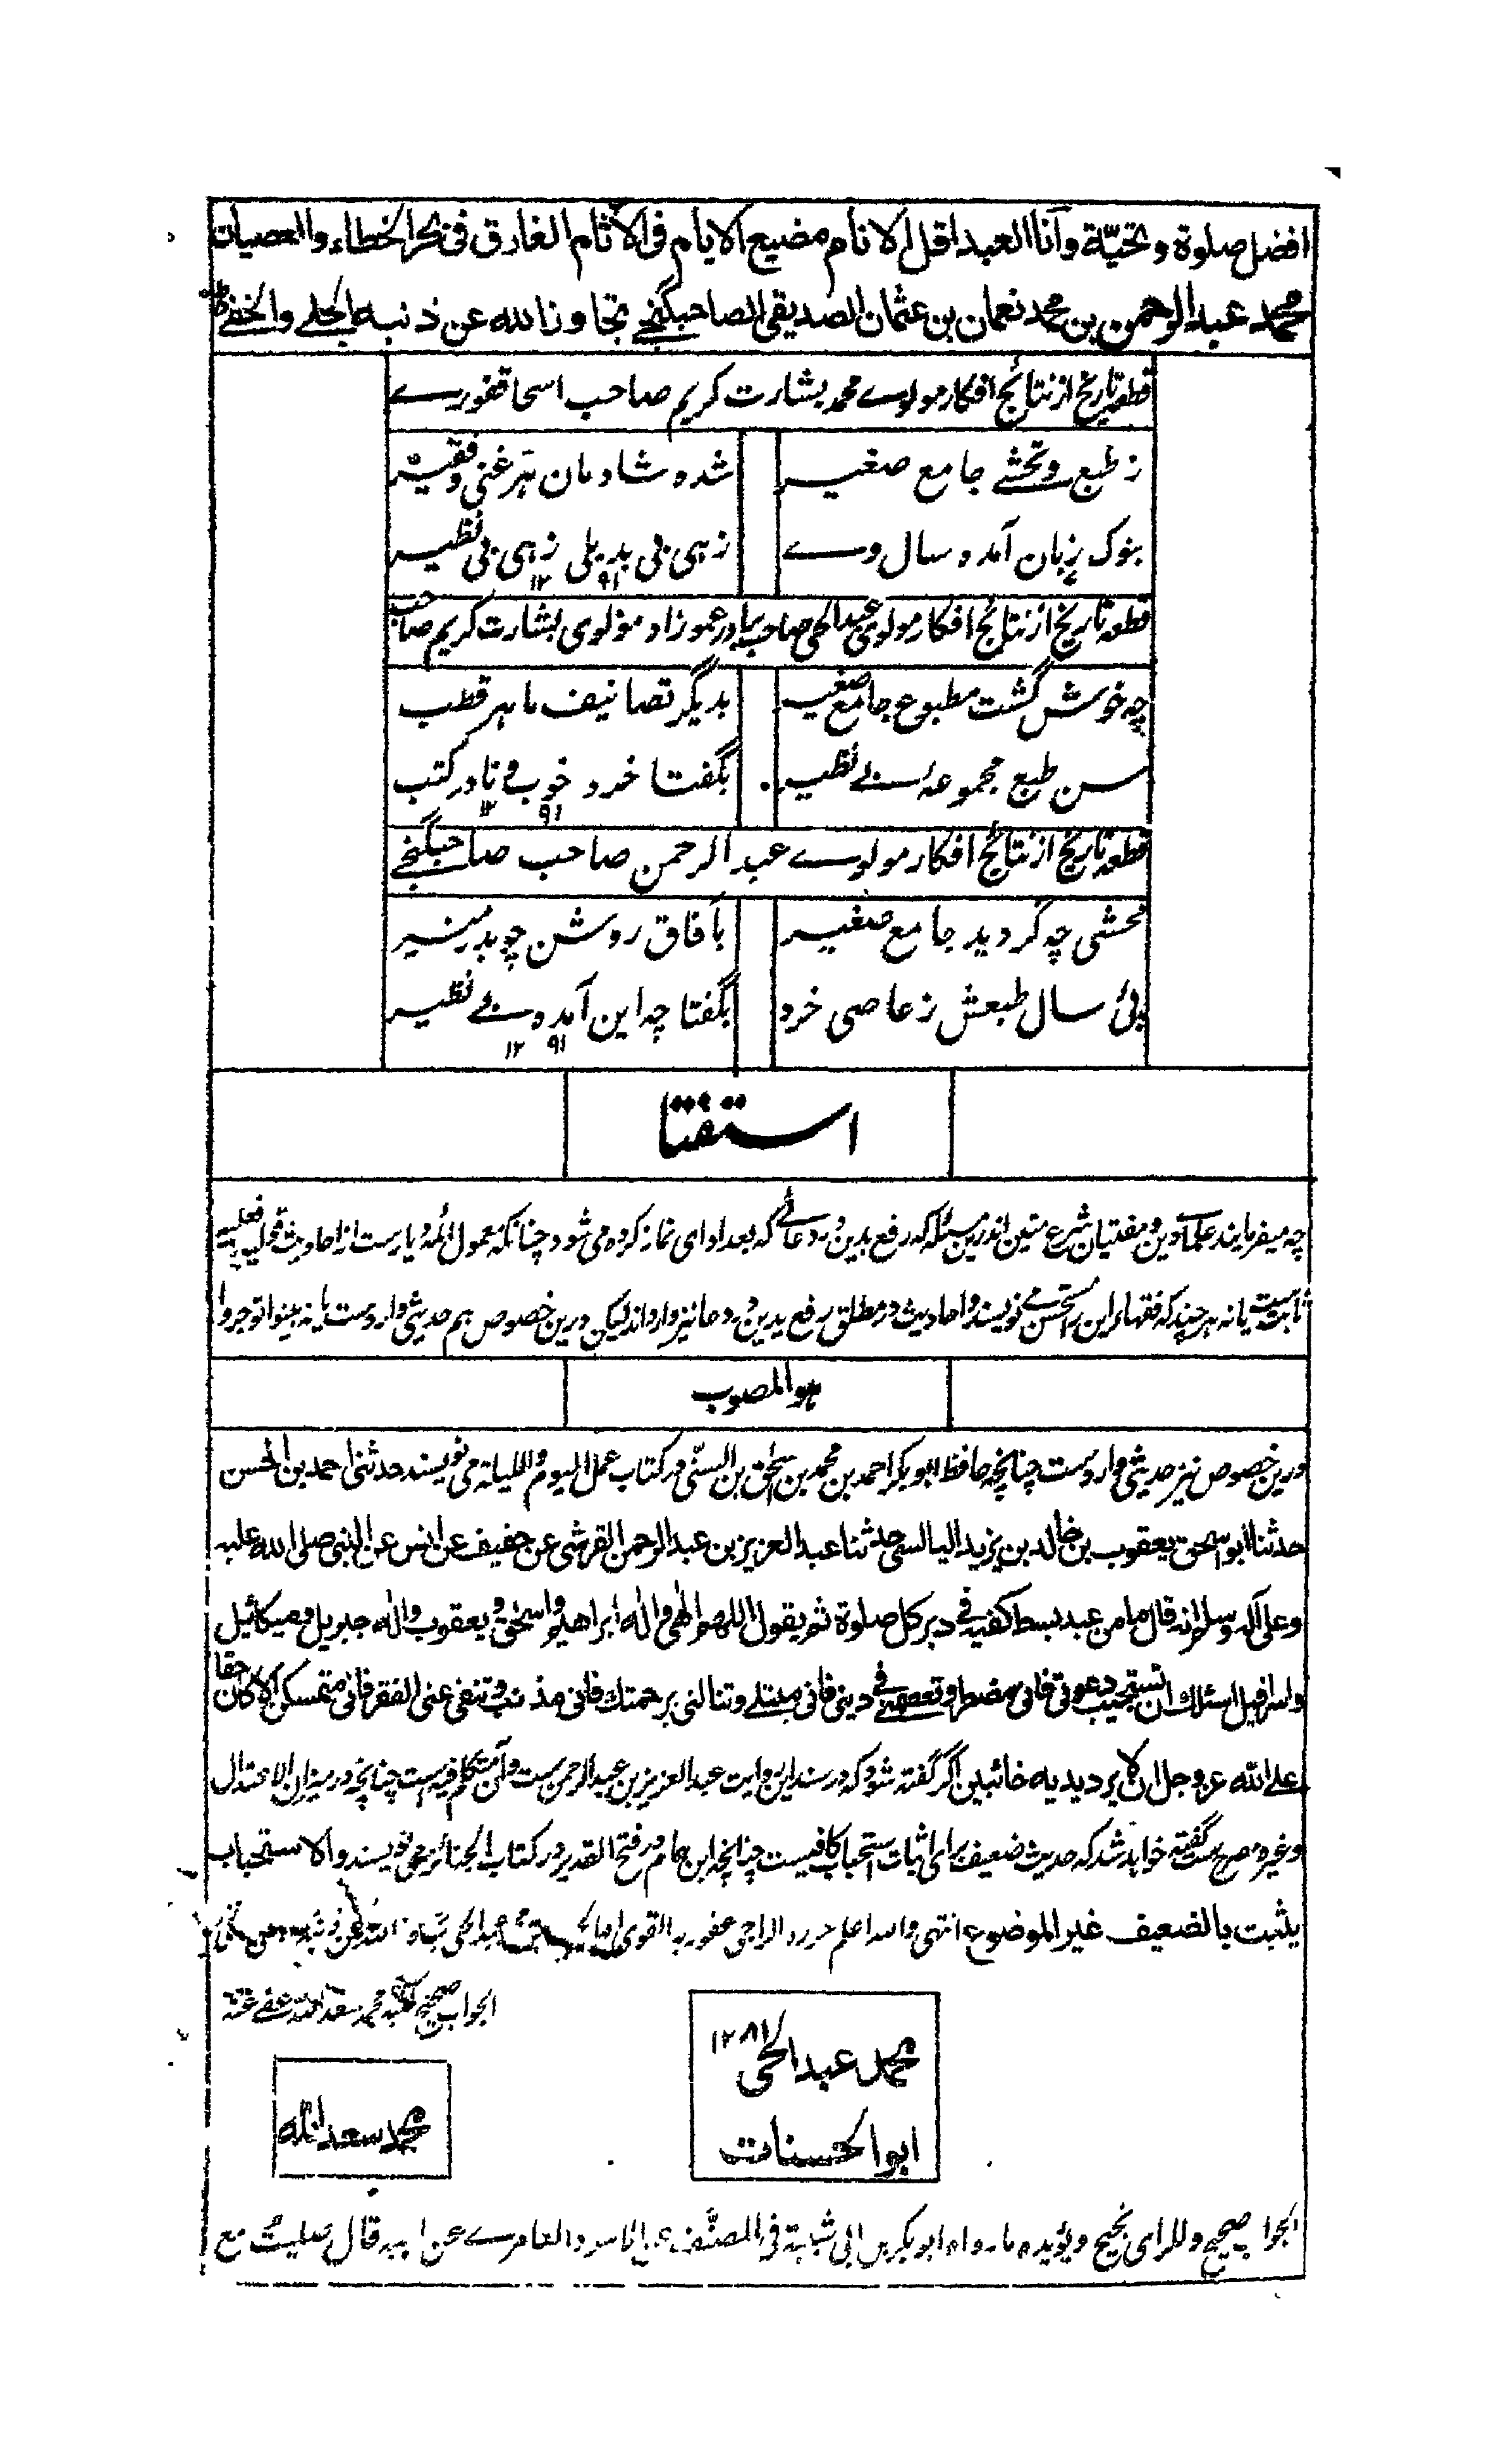 افضل صلوة وتحيّة وأنا العبد اقل الانام مضيع الايام في الآثام الغارق في بحر الخطاء والعصيان
محمد عبد الرحمن بن محمد نعمان بن عثمان الصديقي الصاحبگنجے تجاوز الله عن ذنبه الجلے والخفے
قطعه تاريخ از نتائج افكار مولوے محمد بشارت كريم صاحب اسحاقفورے
ز طبع وتحشے جامع صغير شده شادمان هر غني وفقير
بنوك زبان آمده سال وے زهى بى بديلى زهى بى نظير
۱۲ ۹۱
قطعه تاريخ از نتائج افكار مولوى عبد الحى صاحب برادر عموزاد مولوى بشارت كريم صاحب
چه خوش گشت مطبوع جامع صغير بديگر تصانيف ماهر قطب
سن طبع مجموعهٔ بے نظير بگفتا خرد خوب و نادر كتب
۱۲ ۹۱
قطعه تاريخ از نتائج افكار مولوے عبد الرحمن صاحب صاحبگنجے
محشى چه گرديد جامع صغير بآفاق روشن چو بدر منير
پئ سال طبعش ز عاصى خرد بگفتا چه اين آمده بے نظير
۱۲ ۹۱
استفتا
چه ميفرمايند علماے دين ومفتيان شرع متين اندرين مسئله كه رفع يدين در دعائے كه بعد اداى نماز كرده مى شود چنانكه معمول ائمهٔ ديارست از احاديث قوليه يا فعليه
ثابتست يا نه هر چند كه فقها اين را مستحسن مے نويسند و احاديث در مطلق رفع يدين در دعا نيز وارد اند ليكن درين خصوص هم حديثى وارد ست يا نه بينوا توجروا
هو المصوب
درين خصوص نيز حديثى وارد ست چنانچه حافظ ابو بكر احمد بن محمد بن اسحٰق بن السنّى در كتاب عمل اليوم والليلة مى نويسند حدثنى احمد بن الحسن
حدثنا ابو اسحق يعقوب بن خالد بن يزيد الياليسى حدثنا عبد العزيز بن عبد الرحمن القرشى عن خصيف عن انس عن النبى صلى الله عليه
وعلى آله وسلم انه قال ما من عبد بسط كفيه فے دبر كل صلوة ثم يقول اللهم الٰهى واله ابراهيم واسحٰق ويعقوب واله جبريل وميكائيل
واسرافيل اسئلك ان تستجيب دعوتى فانى مضطر وتعصمنے فے دينى فانى مبتلے وتنالنى برحمتك فانى مذنب وتنفى عنى الفقر فانى متمسكن الا كان حقا
علے الله عز وجل ان لا يرد يديه خائبين اگر گفته شود كه در سند اين روايت عبد العزيز بن عبد الرحمن ست و آن متكلم فيه است چنانچه در ميزان الاعتدال
وغيره مصرح ست گفته خواهد شد كه حديث ضعيف براى اثبات استحباب كافيست چنانچه ابن همام در فتح القدير در كتاب الجنائز مى نويسند والاستحباب
يثبت بالضعيف غير الموضوع انتهى والله اعلم حرره الراجى عفو ربه القوى ابو الحسنات محمد عبد الحى تجاوز الله عن ذنبه
الجواب صحيح كتبه محمد سعد الله عفے عنه
۱۲۸۱
محمد عبد الحى
ابو الحسنات
محمد سعد الله
الجواب صحيح وللراى نجيح ويؤيده ما رواه ابو بكر بن ابى شيبة فى المصنَّف عن الاسود العامرے عن ابيه قال صليت مع